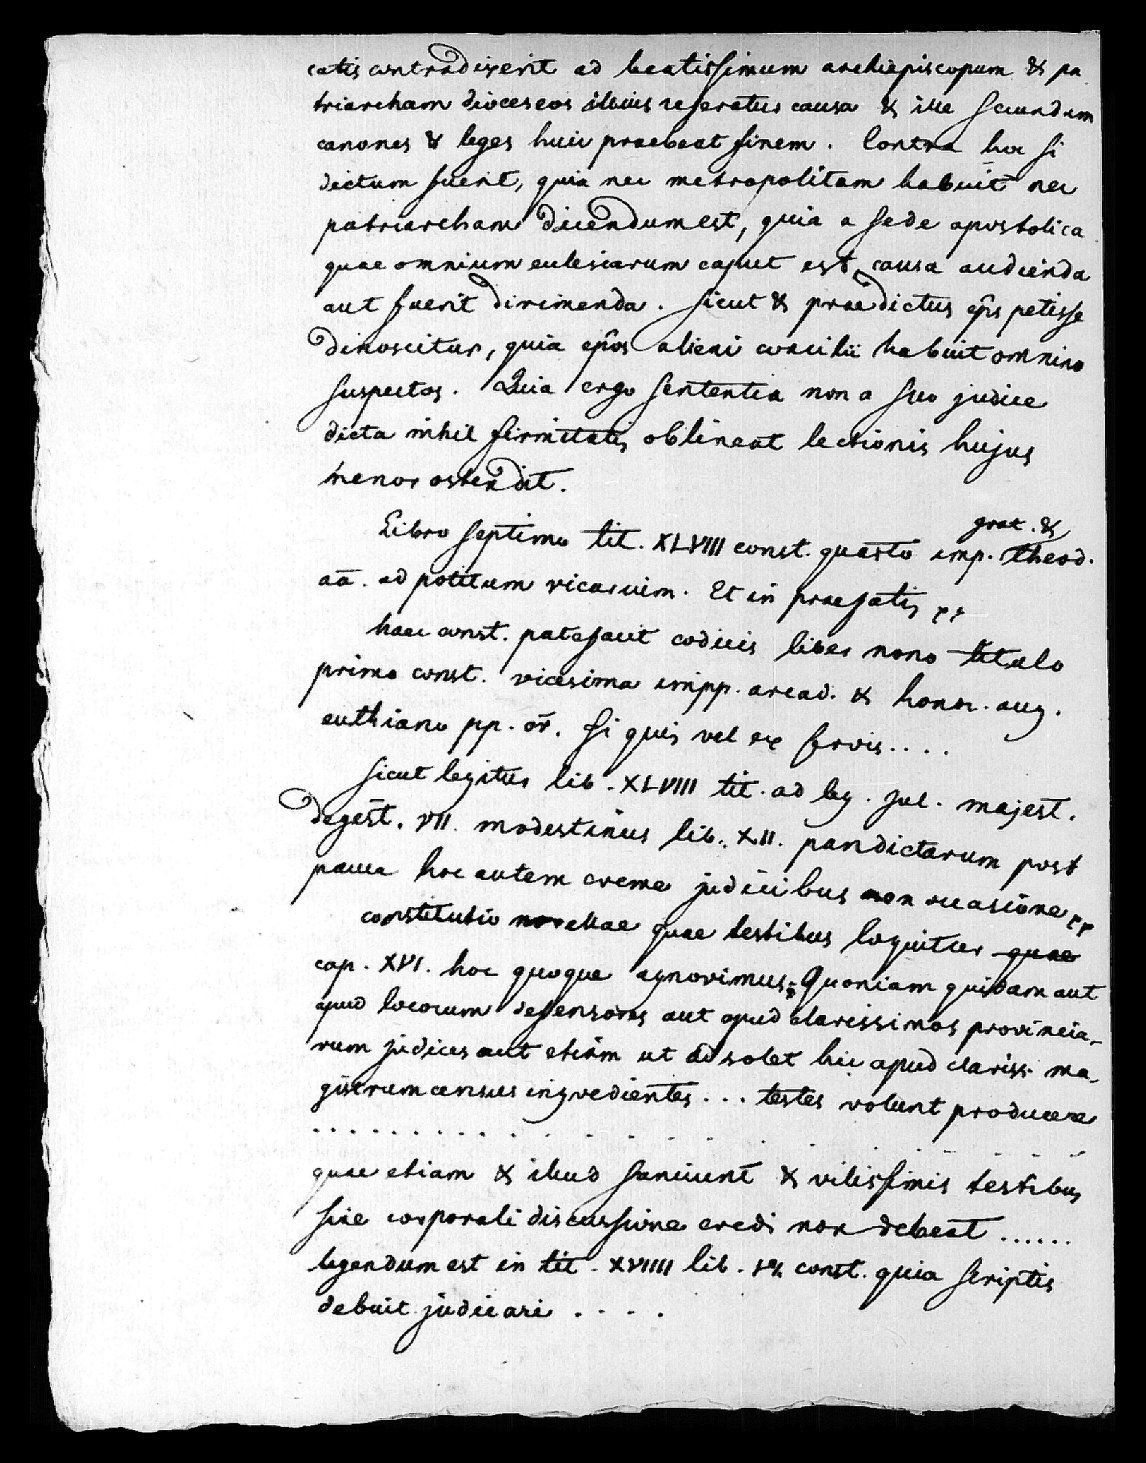 catis contradixerit ad beatissimum archiepiscopum & pa
triarcham dioceseos illius referetur causa & ille secundum
canones & leges huic praebeat finem. Contra hoc si
dictum fuerit, quia nec metropolitam habuit nec
patriarcham dicendum est, quia a sede apostolica
quae omnium ecclesiarum caput est causa audienda
aut fuerit dirimenda. sicut & praedictus eps petisse
dinoscitur, quia epos alieni concilii habuit omnino
suspectos. Quia ergo sententia non a suo judice
dicta nihil firmitatis obtineat lectionis hujus
tenor ostendit.
Libro septimo tit. XLVIII const. quarto imp. grat. & theod.
aā. ad potitum vicarium. Et in praefatis
haec const. patefacit codicis liber nono titulo
primo const. vicesima impp. arcad. & honor. aug.
euthiano pp. or. si quis vel ex servis....
sicut legitur lib. XLVIII tit. ad leg. jul. majest.
degest. VII. modestinus lib. XII. pandictarum post
pauca hoc autem creme judicibus non occasione
constitutio novellae quae testibus loquitur quae
cap. XVI. hoc quoque agnovimus; Quoniam quidam aut
apud locorum defensores aut apud clarissimos provincia-
rum judices aut etiam ut adsolet hic apud clariss. ma-
gistrum census ingredientes... testes volunt producere
. . . . . . . . . . . . . . . . . . . .
quae etiam & illud sanciunt & vilissimis testibus
sine corporali discussione credi non debeat ......
legendum est in tit. XVIIII lib. const. quia scriptis
debuit judicari . . . .